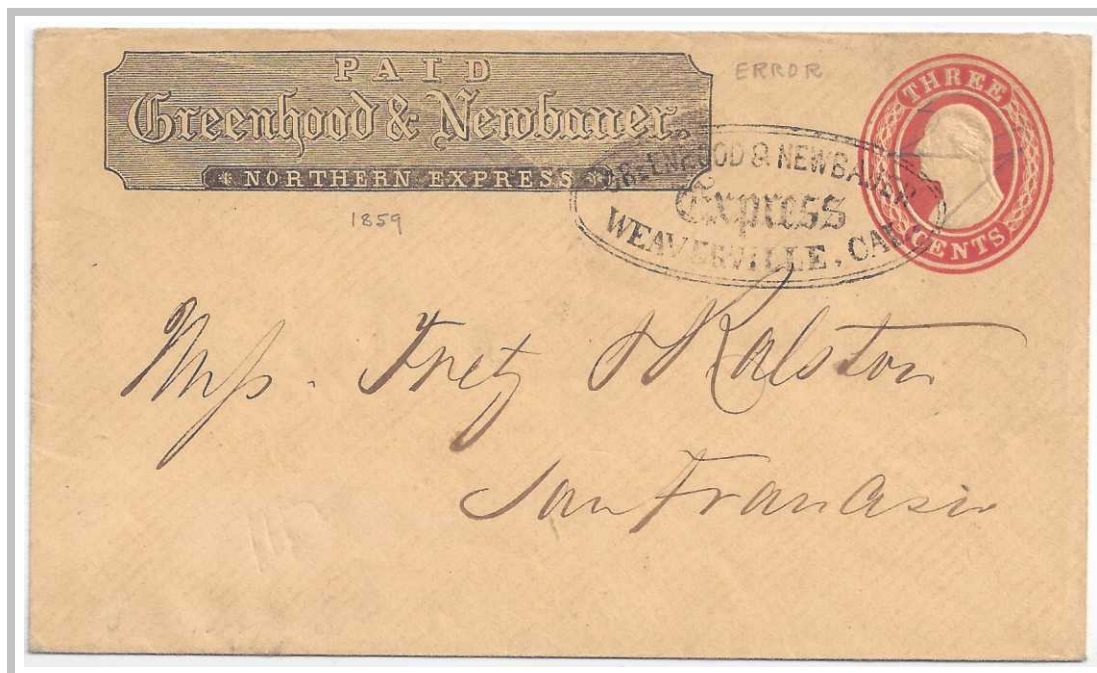 PAID
Greenhood & Newbauer
NORTHERN EXPRESS
ERROR
THREE
CENTS
GREENHOOD & NEWBAUER
Express
WEAVERVILLE, CAL
1859
Mess. Fretz & Ralston
San Francisco